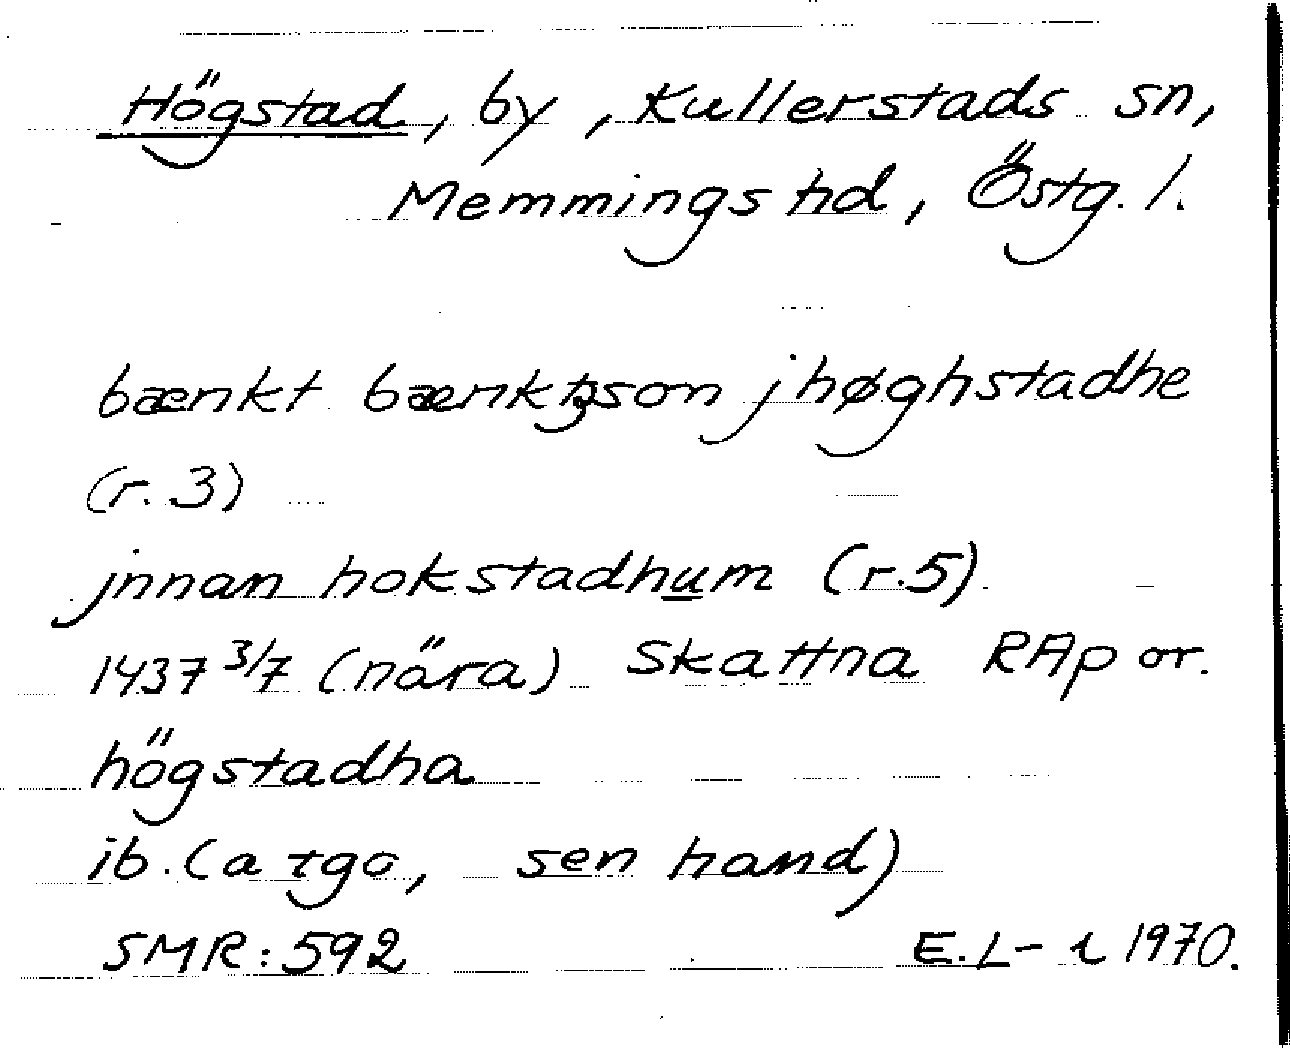 Högstad, by, Kullerstads sn,
Memmings hd, Östg. l.
bænkt bænktzson j høghstadhe
(r. 3)
jnnan hokstadhum (r. 5)
1437 3/7 (nära) Skattna RAp or.
högstadha
ib. (a tgo, sen hand)
SMR: 592 E. L-i 1970.